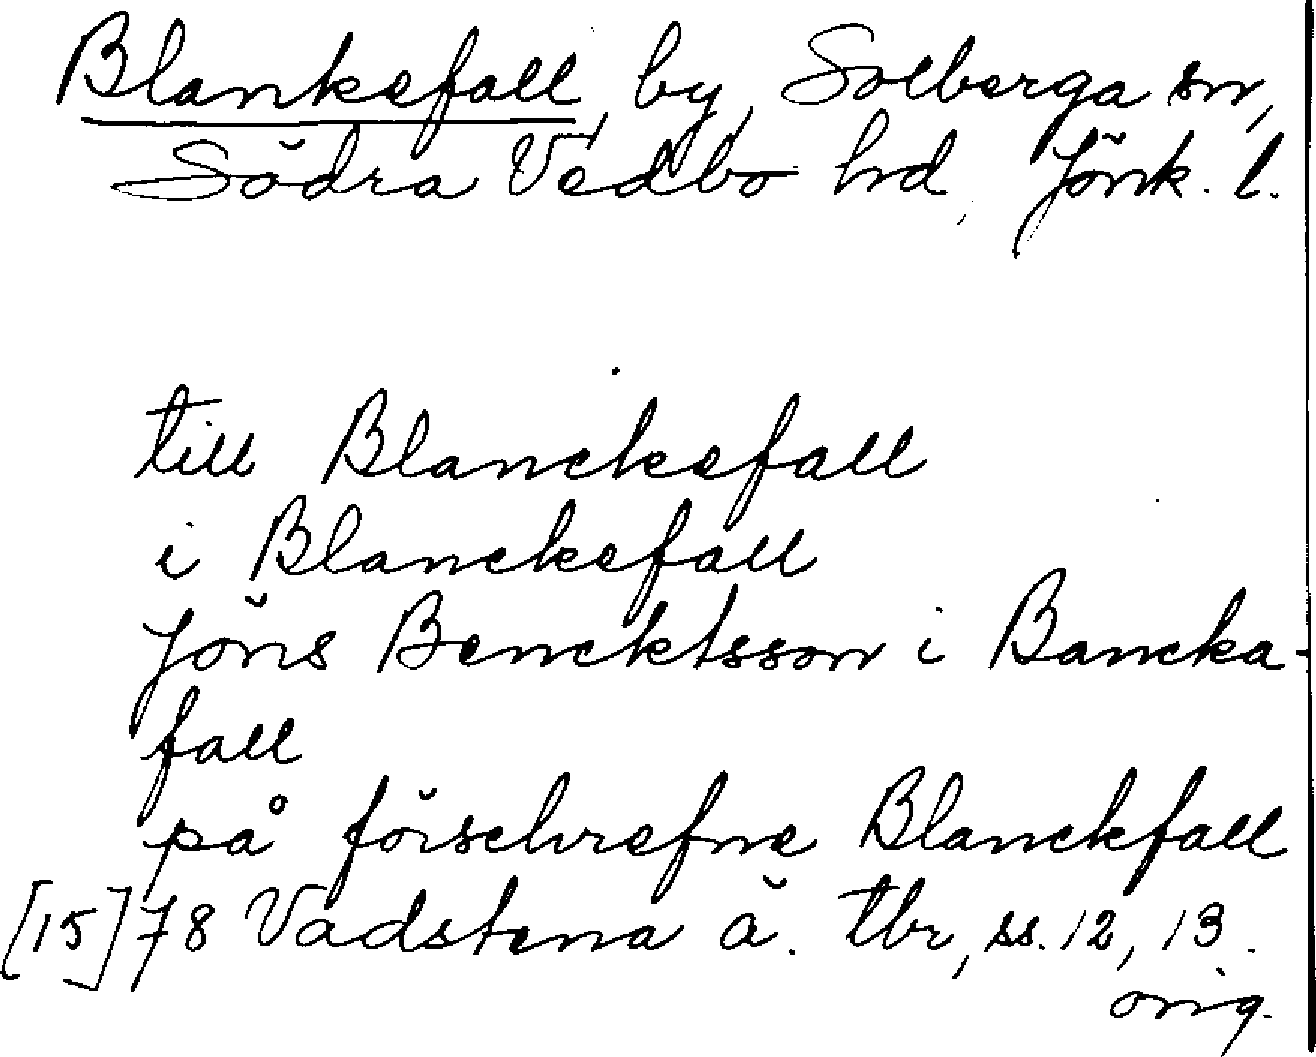 Blankefall, by, Solberga sn,
Södra Vedbo hd, Jönk. l.
till Blanckefall
i Blanckefall
Jöns Bencktsson i Bancka-
fall
på förschrefne Blanckfall
[15]78 Vadstena ä. tbr, ss. 12, 13.
orig.